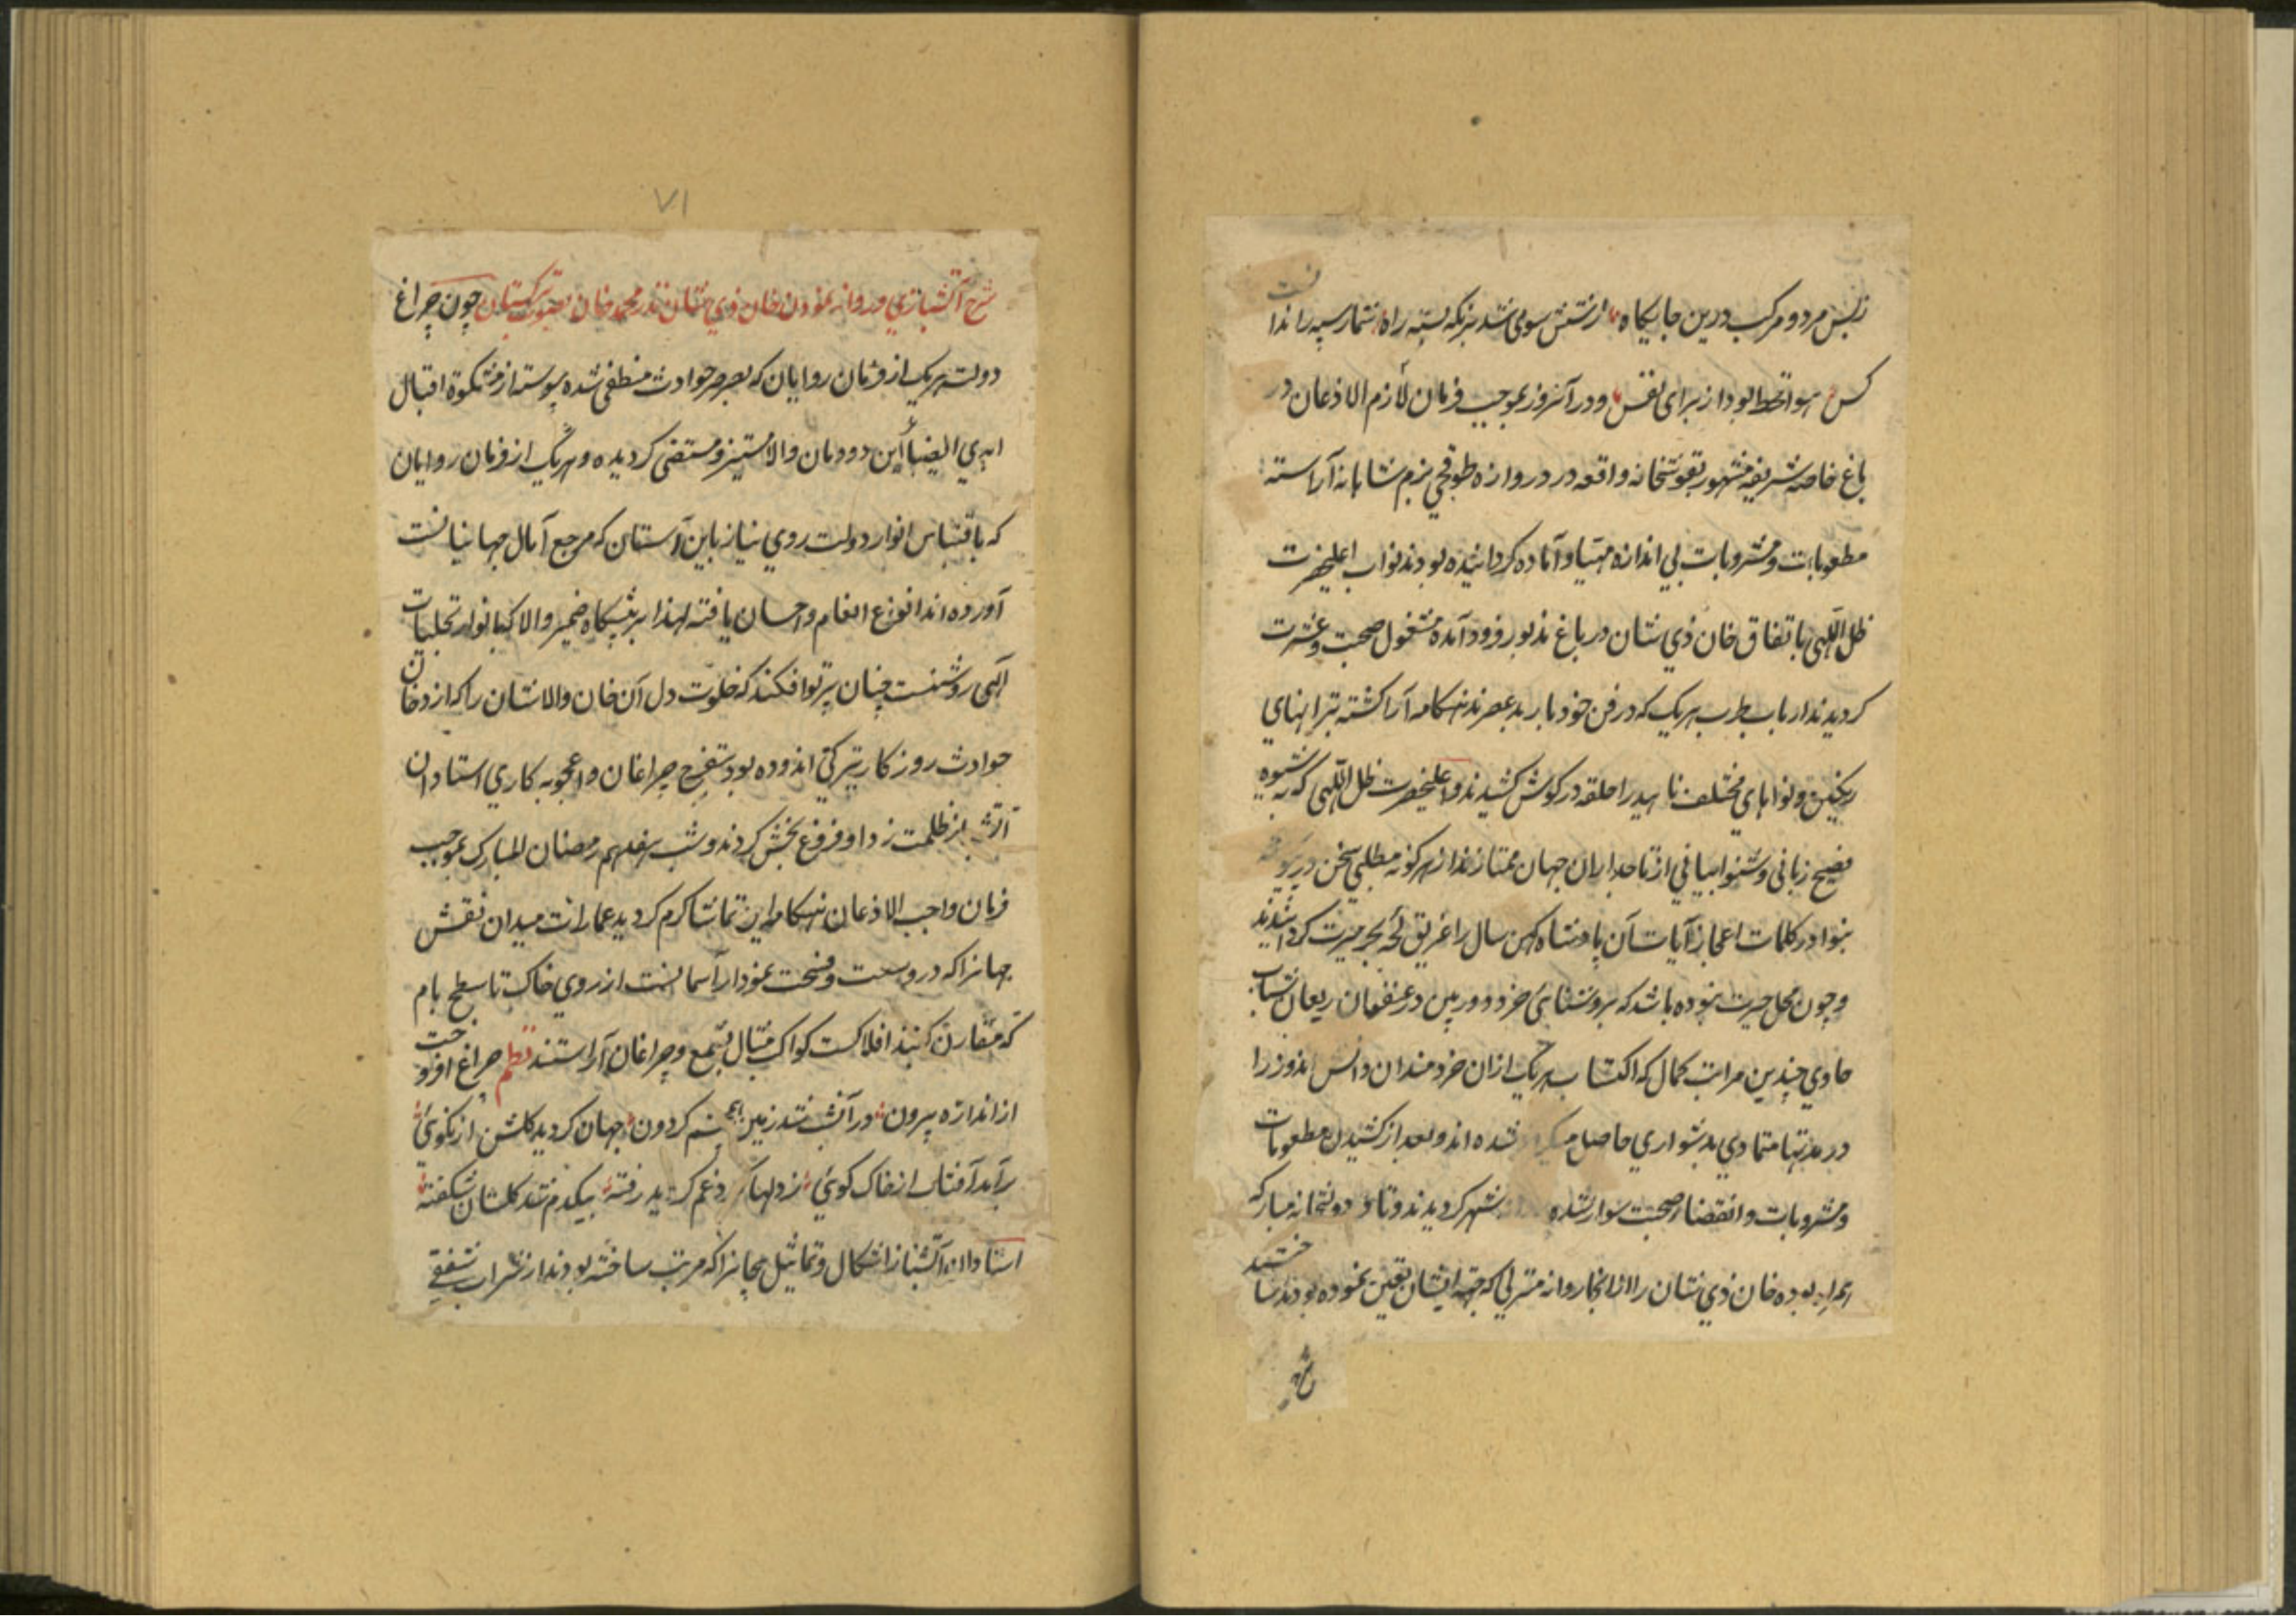 ز بس مرد و مرکب درین جایگاه ز تنش سومی شد بزنکه بسته راه شمار سپه را ندانست
کس هوا قحط بود از برای نفس و در آنروز بموجب فرمان لازم الاذعان در
باغ خاصه شریفه مشهور بقوشخانه واقعه در دروازه طوقچی بزم شاهانه آراسته
مطعومات و مشروبات بی اندازه مهیا و آماده کردانیده بودند نواب اعلیحضرت
ظل اللهی باتفاق خان ذی شان در باغ مذبور فرود آمده مشغول صحبت و عشرت
کردیدند ارباب طرب هریک که در فن خود باربد عصرند هنکامه آرا کشته بترانهای
رنکین و نواهای مختلف ناهید را حلقه در کوش کشیدند و اعلیحضرت ظل اللهی که به شیوه
فصیح زبانی و شیوا بیانی از تاجداران جهان ممتازند از هرکونه مطلبی سخن در پیوسته
بنوادر کلمات اعجاز آیات آن پادشاه کهن سال را غریق لجه بحر حیرت کردانیدند
و چون محل حیرت نبوده باشد که بروشنائی خرد دوربین در عنفوان ریعان شباب
حاوی چندین مراتب کمال که اکتساب هریک ازان خردمندان دانش اندوز را
در مدتها متمادی بدشواری حاصل میکردد شده اند و بعد از کشیدن مطعومات
و مشروبات و انقضاء صحبت سوار شده شهر کردیدند و تا در دولتخانه مبارکه
همراه بوده خان ذی شان را از انجا روانه منزلی که جهة ایشان تعین نموده بودند ساختند
شرح
۷۱
شرح آتشبازی و روانه نمودن خان ذی شان ندر محمد خان بصوب ترکستان چون چراغ
دولت هریک از فرمان روایان که بصرصر حوادث منطفی شده پیوسته از مشکوة اقبال
ابدی الضیاء این دودمان والا مستنیر و مستضی کردیده و هریک از فرمان روایان
که باقتباس انوار دولت روی نیاز باین آستان که مرجع آمال جهانیانست
آورده اند انوع انعام و احسان یافته لهذا بر پیشکاه ضمیر والا که بانوار تجلیات
الهی روشنست چنان پرتو افکند که خلوت دل آن خان والاشان را که از دخان
حوادث روزکار تیرکی اندوده بود بتفرج چراغان و اعجوبه کاری استادان
آتشباز ظلمت زدا و فروغ بخش کردند و شب هفدهم رمضان المبارک بموجب
فرمان واجب الاذعان هنکامه این تماشا کرم کردید عمارات میدان نقش
جهانرا که در وسعت و فسحت نمودار آسمانست از روی خاک تا سطح بام
که مقارن کنبذ افلاکست کواکب مثال بشمع و چراغان آراستند نظم چراغ افروخت
از اندازه بیرون در آتش شد زمین هم چشم کردون جهان کردید کلشن از نکوئی
برآمد آفتاب از خاک کوئی ز دلها کرد غم کردید رفته بیکدم شد کلستان شکفته
استادان آتشباز اشکال و تماثیل بیجانرا که مرتب ساخته بودند از شراب شفقی